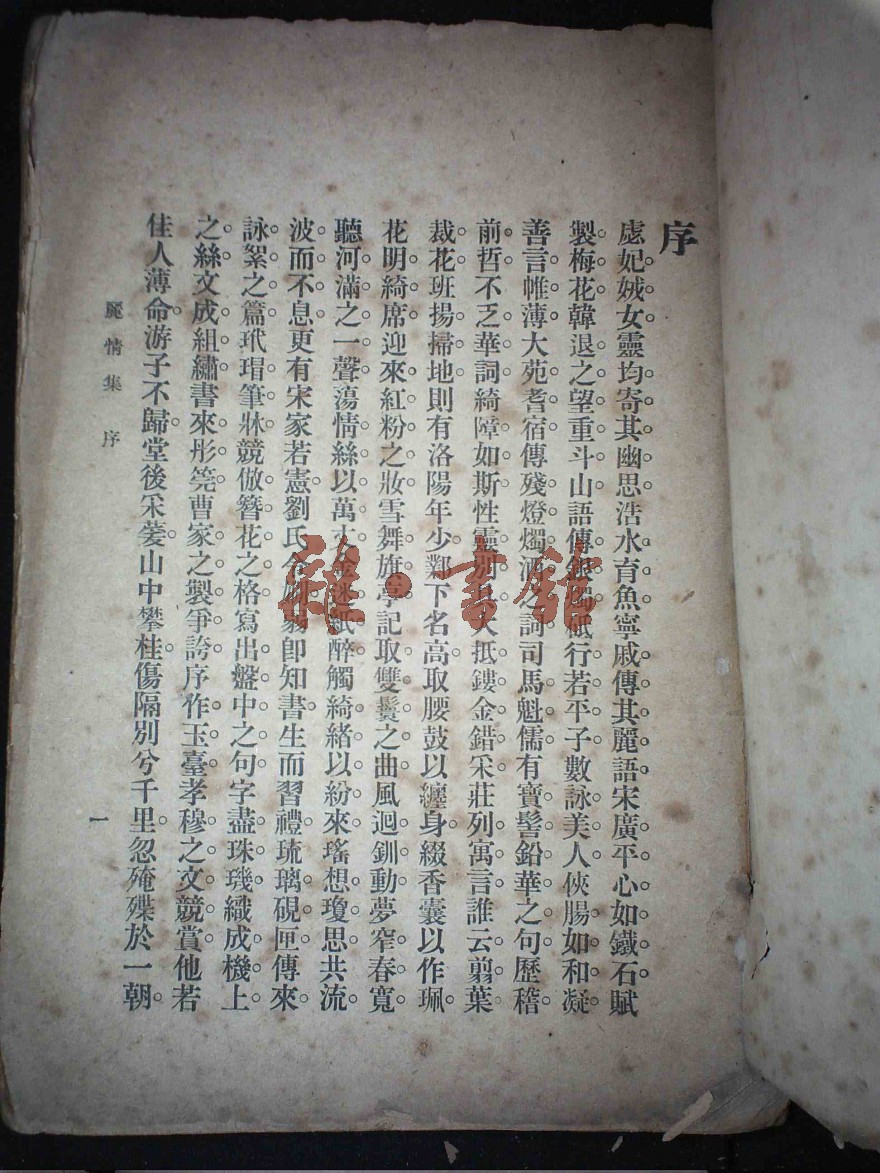 序
虙妃娀女。靈均寄其幽思。浩水育魚。寧戚傳其麗語。宋廣平心如鐵石。賦
製梅花。韓退之望重斗山。語傳銀燭。砥行若平子。數詠美人。俠腸如和凝。
善言帷薄。大苑耆宿。傳殘燈燭酒之詞。司馬魁儒。有寶髻鉛華之句。歷稽
前哲。不乏華詞。綺障如斯。性靈別具。大抵鏤金錯采。莊列寓言。誰云翦葉
裁花。班揚掃地。則有洛陽年少。鄴下名高。取腰鼓以纏身。綴香囊以作珮。
花明綺席。迎來紅粉之妝。雪舞旗亭。記取雙鬟之曲。風迴釧動。夢窄春寬。
聽河滿之一聲。蕩情絲以萬丈。金迷紙醉。觸綺緒以紛來。瑤想瓊思。共流
波而不息。更有宋家若憲。劉氏令嫻。易即知書。生而習禮。琉璃硯匣。傳來
詠絮之篇。玳瑁筆牀。競倣簪花之格。寫出盤中之句。字盡珠璣。織成機上
之絲。文成組繡。書來彤筦。曹家之製爭誇。序作玉臺。孝穆之文競賞。他若
佳人薄命。游子不歸。堂後采蔞。山中攀桂。傷隔別兮千里。忽殗殜於一朝。
麗情集 序
一
雜·書館